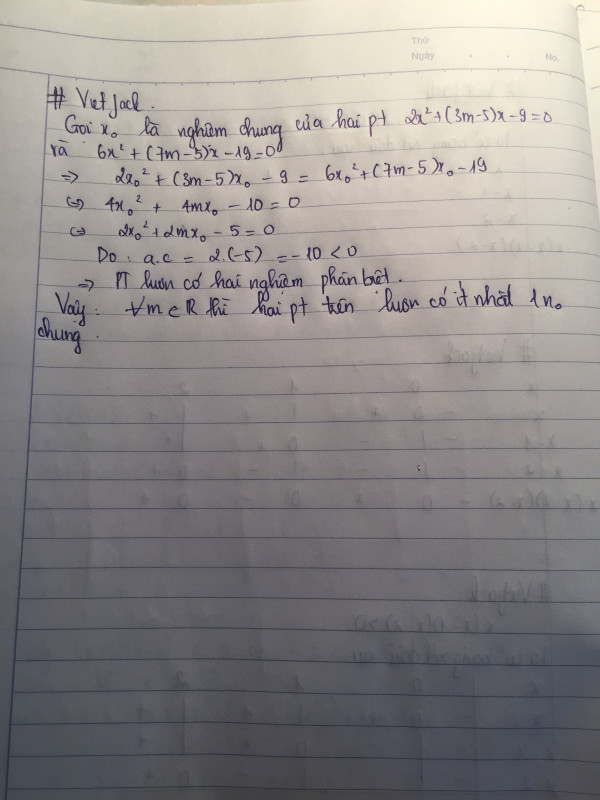 Thứ
Ngày . . No.
# VietJack.
Gọi x₀ là nghiệm chung của hai pt 2x² + (3m-5)x - 9 = 0
và 6x² + (7m-5)x - 19 = 0
=> 2x₀² + (3m-5)x₀ - 9 = 6x₀² + (7m-5)x₀ - 19
<=> 4x₀² + 4mx₀ - 10 = 0
<=> 2x₀² + 2mx₀ - 5 = 0
Do : a.c = 2.(-5) = -10 < 0
=> PT luôn có hai nghiệm phân biệt.
Vậy : ∀m ∈ R thì hai pt trên luôn có ít nhất 1 n₀
chung.